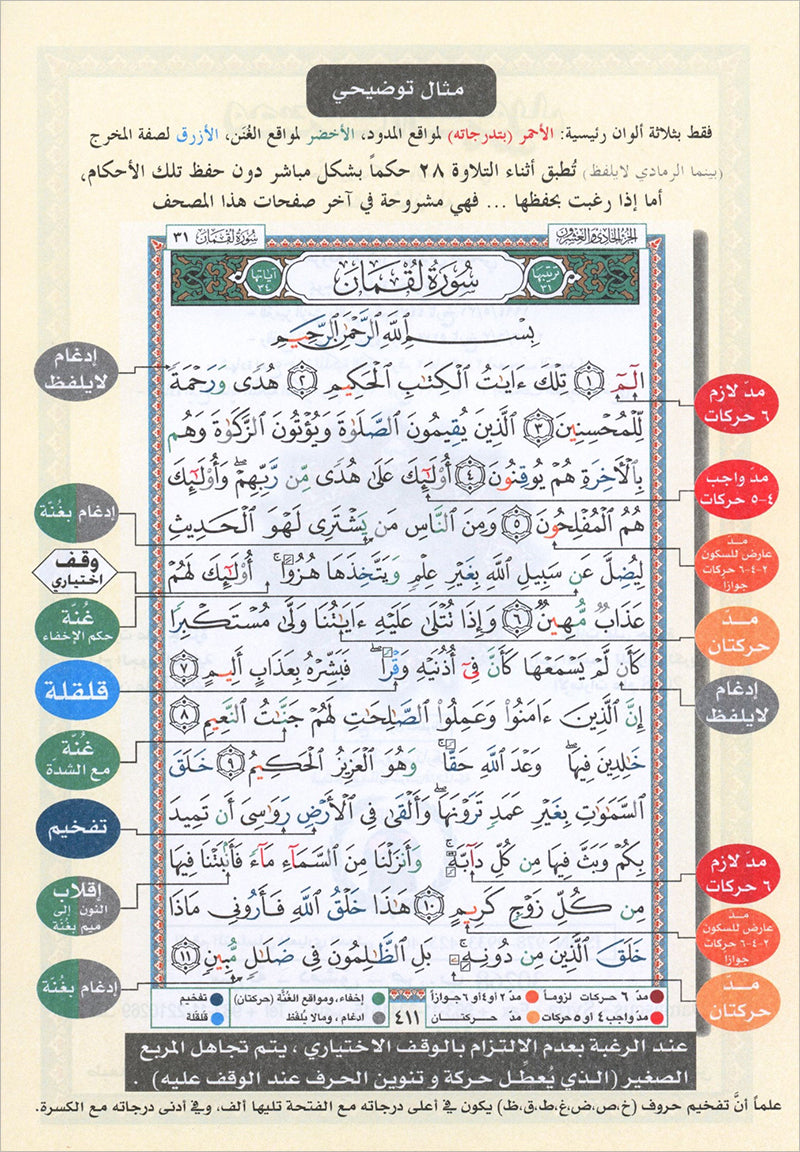 مثال توضيحي
فقط بثلاثة ألوان رئيسية: الأحمر (بتدرجاته) لمواقع المدود، الأخضر لمواقع الغُنَن، الأزرق لصفة المخرج
(بينما الرمادي لايلفظ) تُطبق أثناء التلاوة ٢٨ حكماً بشكل مباشر دون حفظ تلك الأحكام،
أما إذا رغبت بحفظها ... فهي مشروحة في آخر صفحات هذا المصحف
الجزء الحادي والعشرون
سورة لقمان ٣١
ترتيبها ٣١
سُورَةُ لُقْمَان
آياتها ٣٤
بِسْمِ ٱللَّهِ ٱلرَّحْمَٰنِ ٱلرَّحِيمِ
الٓمٓ ١ تِلْكَ ءَايَٰتُ ٱلْكِتَٰبِ ٱلْحَكِيمِ ٢ هُدًى وَرَحْمَةً
لِّلْمُحْسِنِينَ ٣ ٱلَّذِينَ يُقِيمُونَ ٱلصَّلَوٰةَ وَيُؤْتُونَ ٱلزَّكَوٰةَ وَهُم
بِٱلْءَاخِرَةِ هُمْ يُوقِنُونَ ٤ أُو۟لَٰٓئِكَ عَلَىٰ هُدًى مِّن رَّبِّهِمْ ۖ وَأُو۟لَٰٓئِكَ
هُمُ ٱلْمُفْلِحُونَ ٥ وَمِنَ ٱلنَّاسِ مَن يَشْتَرِى لَهْوَ ٱلْحَدِيثِ
لِيُضِلَّ عَن سَبِيلِ ٱللَّهِ بِغَيْرِ عِلْمٍ وَيَتَّخِذَهَا هُزُوًا ۚ أُو۟لَٰٓئِكَ لَهُمْ
عَذَابٌ مُّهِينٌ ٦ وَإِذَا تُتْلَىٰ عَلَيْهِ ءَايَٰتُنَا وَلَّىٰ مُسْتَكْبِرًا
كَأَن لَّمْ يَسْمَعْهَا كَأَنَّ فِىٓ أُذُنَيْهِ وَقْرًا ۖ فَبَشِّرْهُ بِعَذَابٍ أَلِيمٍ ٧
إِنَّ ٱلَّذِينَ ءَامَنُوا۟ وَعَمِلُوا۟ ٱلصَّٰلِحَٰتِ لَهُمْ جَنَّٰتُ ٱلنَّعِيمِ ٨
خَٰلِدِينَ فِيهَا ۖ وَعْدَ ٱللَّهِ حَقًّا ۚ وَهُوَ ٱلْعَزِيزُ ٱلْحَكِيمُ ٩ خَلَقَ
ٱلسَّمَٰوَٰتِ بِغَيْرِ عَمَدٍ تَرَوْنَهَا ۖ وَأَلْقَىٰ فِى ٱلْأَرْضِ رَوَٰسِىَ أَن تَمِيدَ
بِكُمْ وَبَثَّ فِيهَا مِن كُلِّ دَآبَّةٍ ۚ وَأَنزَلْنَا مِنَ ٱلسَّمَآءِ مَآءً فَأَنۢبَتْنَا فِيهَا
مِن كُلِّ زَوْجٍ كَرِيمٍ ١٠ هَٰذَا خَلْقُ ٱللَّهِ فَأَرُونِى مَاذَا
خَلَقَ ٱلَّذِينَ مِن دُونِهِۦ ۚ بَلِ ٱلظَّٰلِمُونَ فِى ضَلَٰلٍ مُّبِينٍ ١١
مدّ لازم
٦ حركات
مدّ واجب
٤-٥ حركات
مدّ
عارض للسكون
٢-٤-٦ حركات
جوازاً
مدّ
حركتان
إدغام
لايلفظ
مدّ لازم
٦ حركات
مدّ
عارض للسكون
٢-٤-٦ حركات
جوازاً
مدّ
حركتان
إدغام
لايلفظ
إدغام بغُنّة
وقف
اختياري
غُنّة
حكم الإخفاء
قلقلة
غُنّة
مع الشدّة
تفخيم
إقلاب
النون إلى
ميم بغُنّة
إدغام بغُنّة
مدّ ٦ حركات لزوماً
مدّ ٢ أو ٤ أو ٦ جوازاً
مدّ واجب ٤ أو ٥ حركات
مدّ حركتــان
٤١١
إخفاء، ومواقع الغُنَّة (حركتان)
ادغام، ومالا يُلفَظ
تفخيم
قلقلة
عند الرغبة بعدم الالتزام بالوقف الاختياري ، يتم تجاهل المربع
الصغير (الذي يُعطِّل حركة و تنوين الحرف عند الوقف عليه) .
علماً أنَّ تفخيم حروف (خ،ص،ض،غ،ط،ق،ظ) يكون في أعلى درجاته مع الفتحة تليها ألف، وفي أدنى درجاته مع الكسرة.